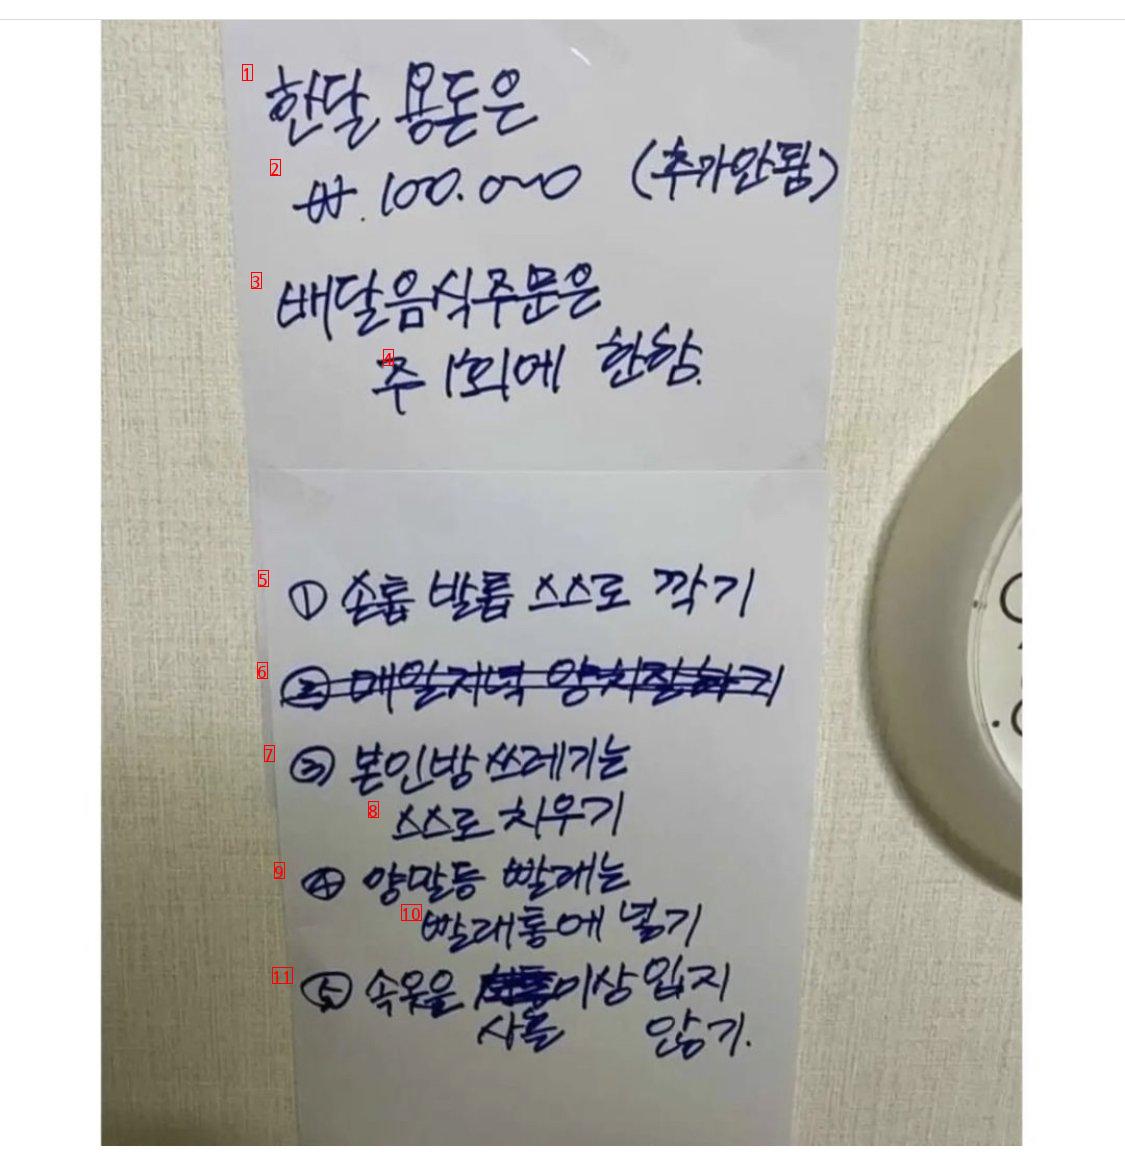 한달 용돈은
₩.100.000 (추가안됨)
배달음식주문은
주 1회에 한함.
① 손톱 발톱 스스로 깍기
② 매일저녁 양치질하기
③ 본인방 쓰레기는
스스로 치우기
④ 양말등 빨래는
빨래통에 넣기
⑤ 속옷을 이상 입지
사흘 않기.